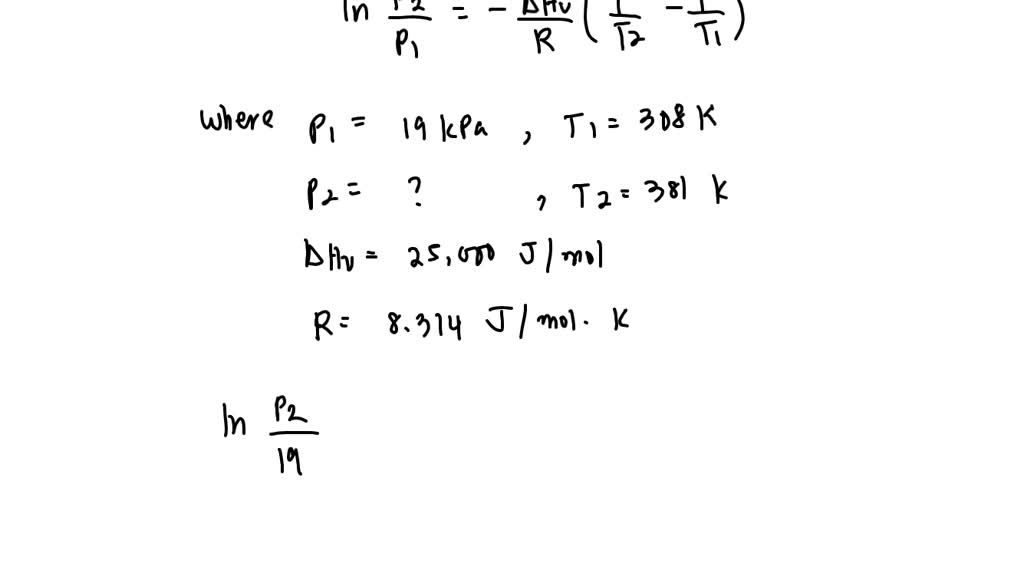 ln P2/P1 = - ΔHv/R ( 1/T2 - 1/T1 )
where P1 = 19 kPa , T1 = 308 K
P2 = ? , T2 = 381 K
ΔHv = 25,000 J/mol
R = 8.314 J/mol. K
ln P2/19